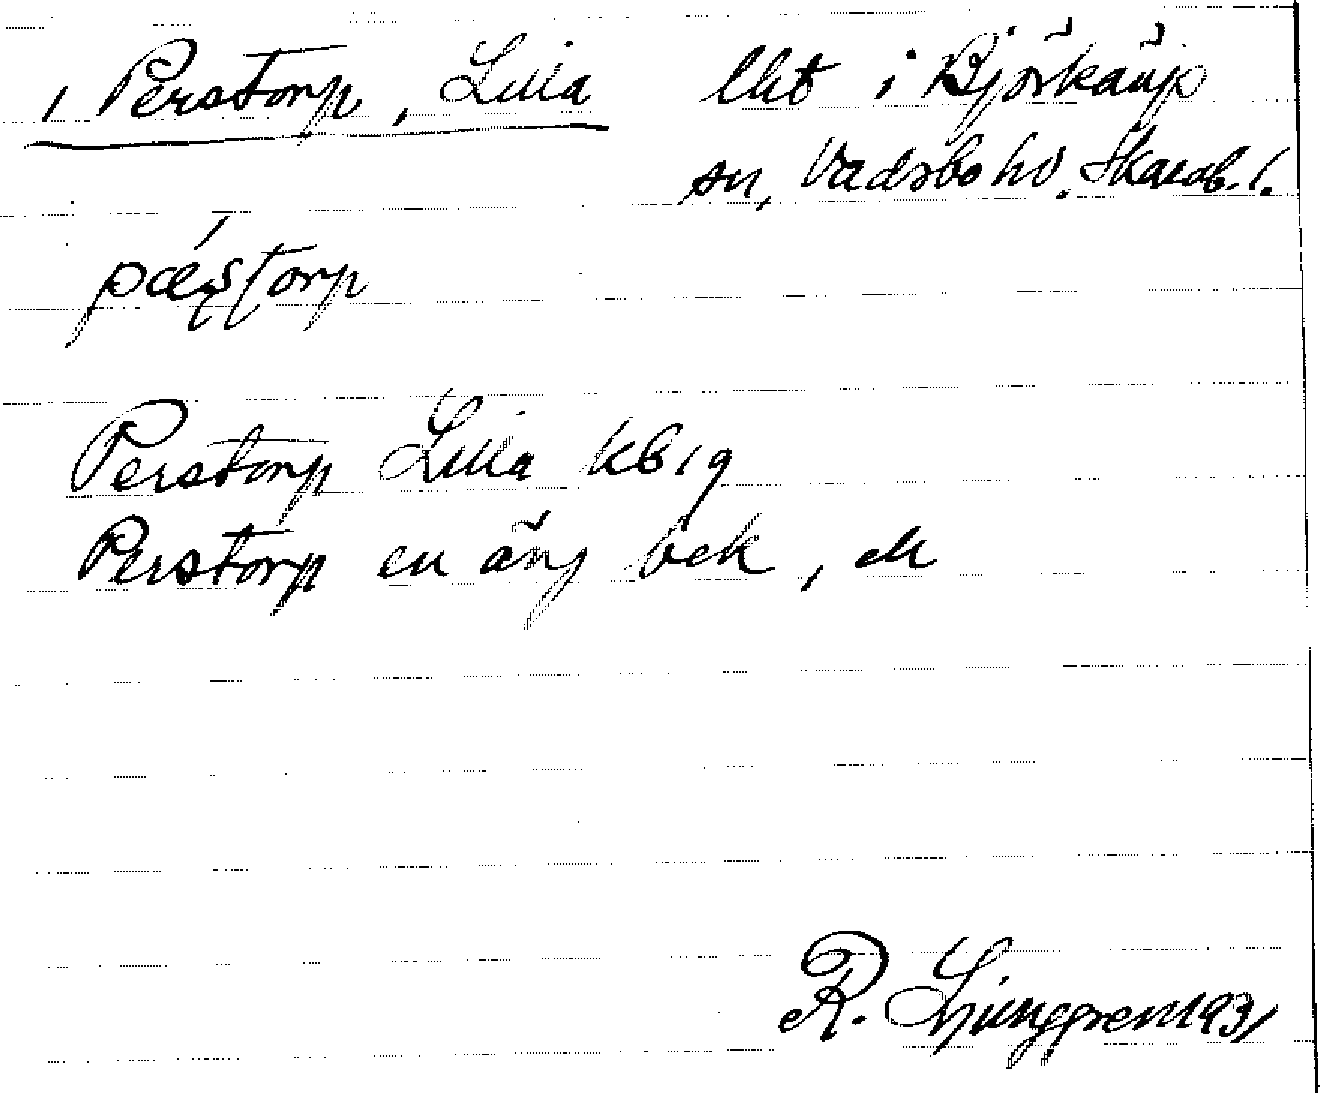 , Perstorp, Lilla lht i Björkäng
sn, Vadsbo hd. Skarab. l.
pæʂtorp
Perstorp Lilla kb 19
Perstorp en äng bek,
R. Ljunggren 1931